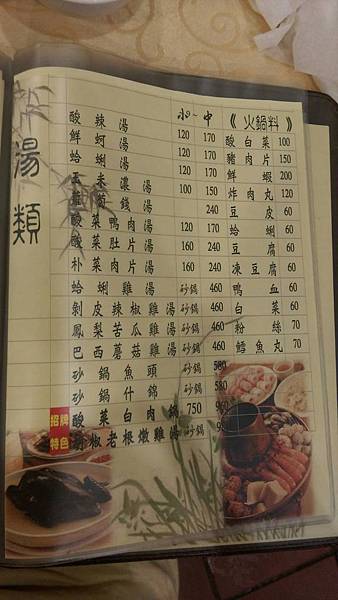 湯類
小~中
酸辣湯 120 170
鮮蚵湯 120 170
蛤蜊湯 120 170
玉米濃湯 100 150
酸菜鴨肉湯 120 240
酸菜肚片湯 160 240
朴菜肉片湯 160 240
蛤蜊雞湯 砂鍋 460
剝皮辣椒雞湯 砂鍋 460
鳳梨苦瓜雞湯 砂鍋 460
巴西蘑菇雞湯 砂鍋 460
砂鍋魚頭 砂鍋 580
砂鍋什錦 砂鍋 580
招牌特色
酸菜白肉鍋 750 960
胡椒老根燉雞湯 砂鍋
《火鍋料》
酸白菜 100
豬肉片 150
鮮蝦 200
炸肉丸 120
豆皮 60
蛤蜊 60
豆腐 60
凍豆腐 60
鴨血 60
白菜 60
粉絲 70
鱈魚丸 70